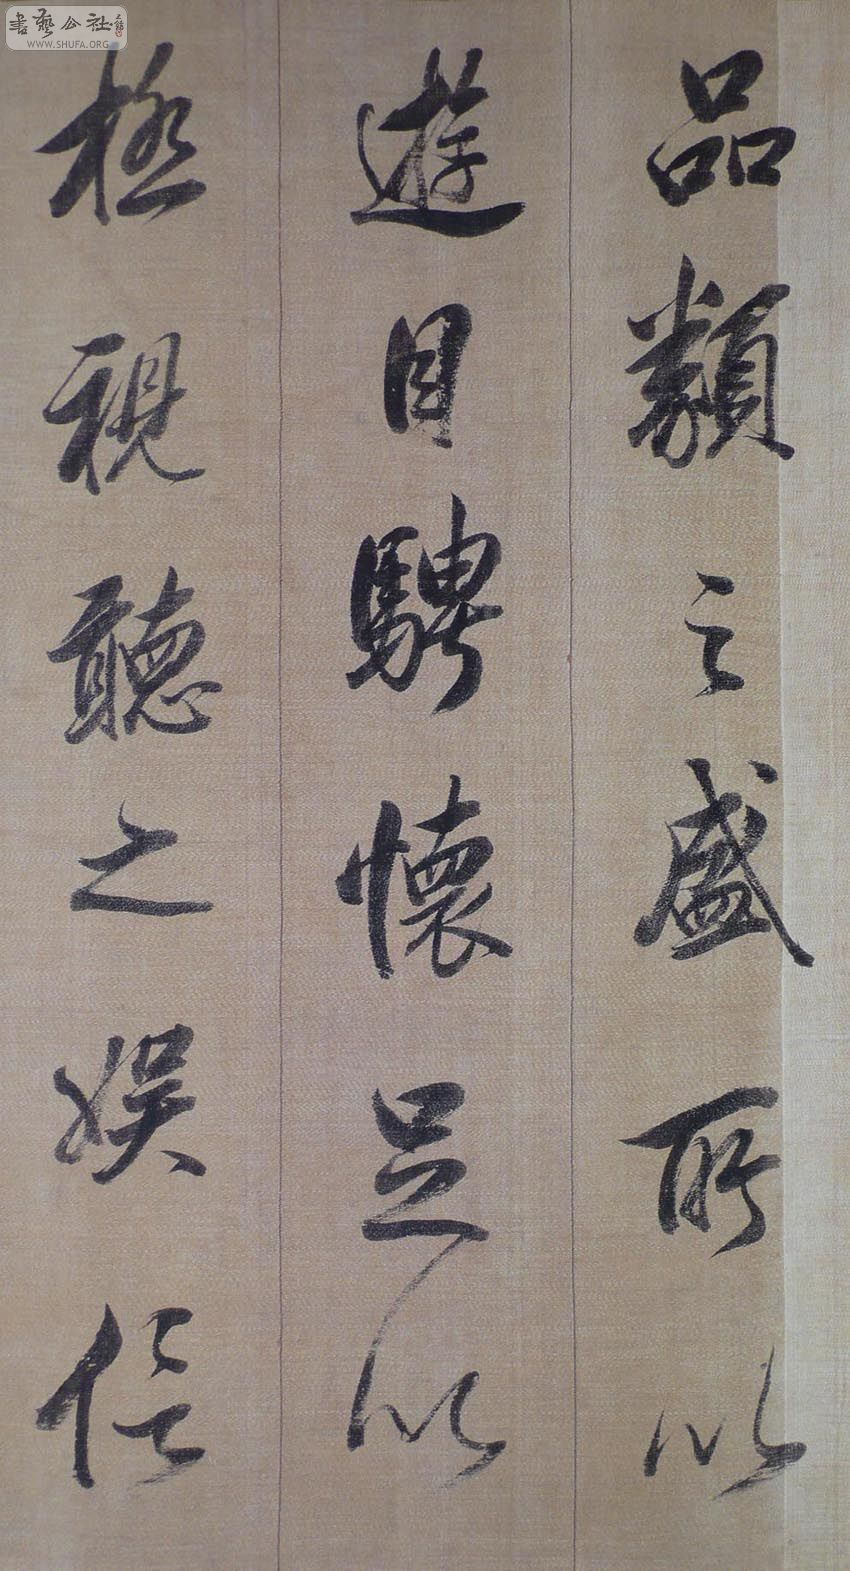 品類之盛所以
遊目騁懷足以
極視聽之娛信
書藝公社
WWW.SHUFA.ORG